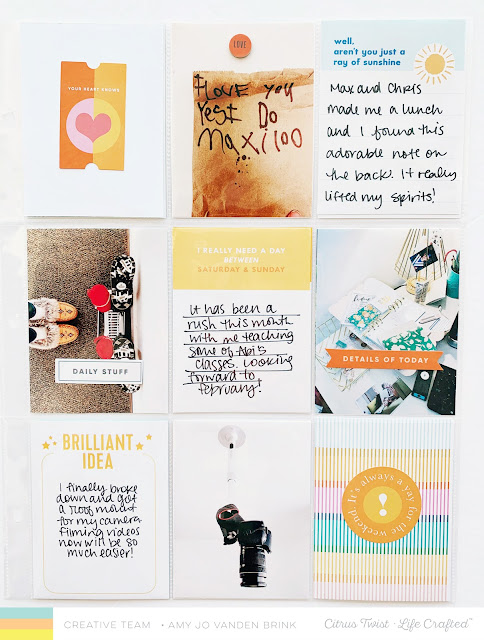 YOUR HEART KNOWS
LOVE
I LOVE YOU
Yest Do
Maxi100
well,
aren't you just a
ray of sunshine
Max and Chris
made me a lunch
and I found this
adorable note on
the back. It really
lifted my spirits!
DAILY STUFF
I REALLY NEED A DAY
BETWEEN
SATURDAY & SUNDAY
It has been a
rush this month
with me teaching
some of Abi's
classes. Looking
forward to
february!
DETAILS OF TODAY
BRILLIANT
IDEA
I finally broke
down and got
a roof mount
for my camera
filming videos
now will be so
much easier!
It's always a yay for the weekend.
!
CREATIVE TEAM • AMY JO VANDEN BRINK
Citrus Twist · Life Crafted™